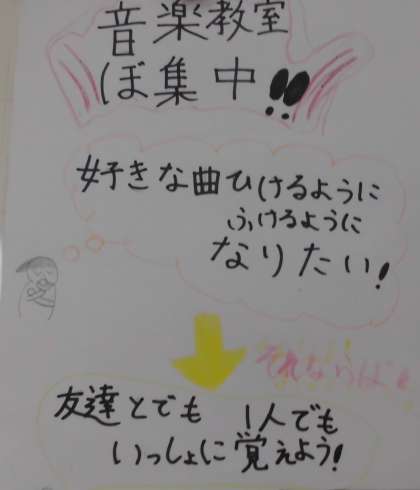 音楽教室
ぼ集中!!
好きな曲ひけるように
ふけるように
なりたい!
それならば!
友達とでも 1人でも
いっしょに覚えよう!